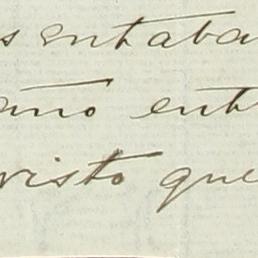 sentaba
año ent
visto que